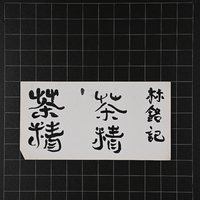 林銘記
茶精
茶精